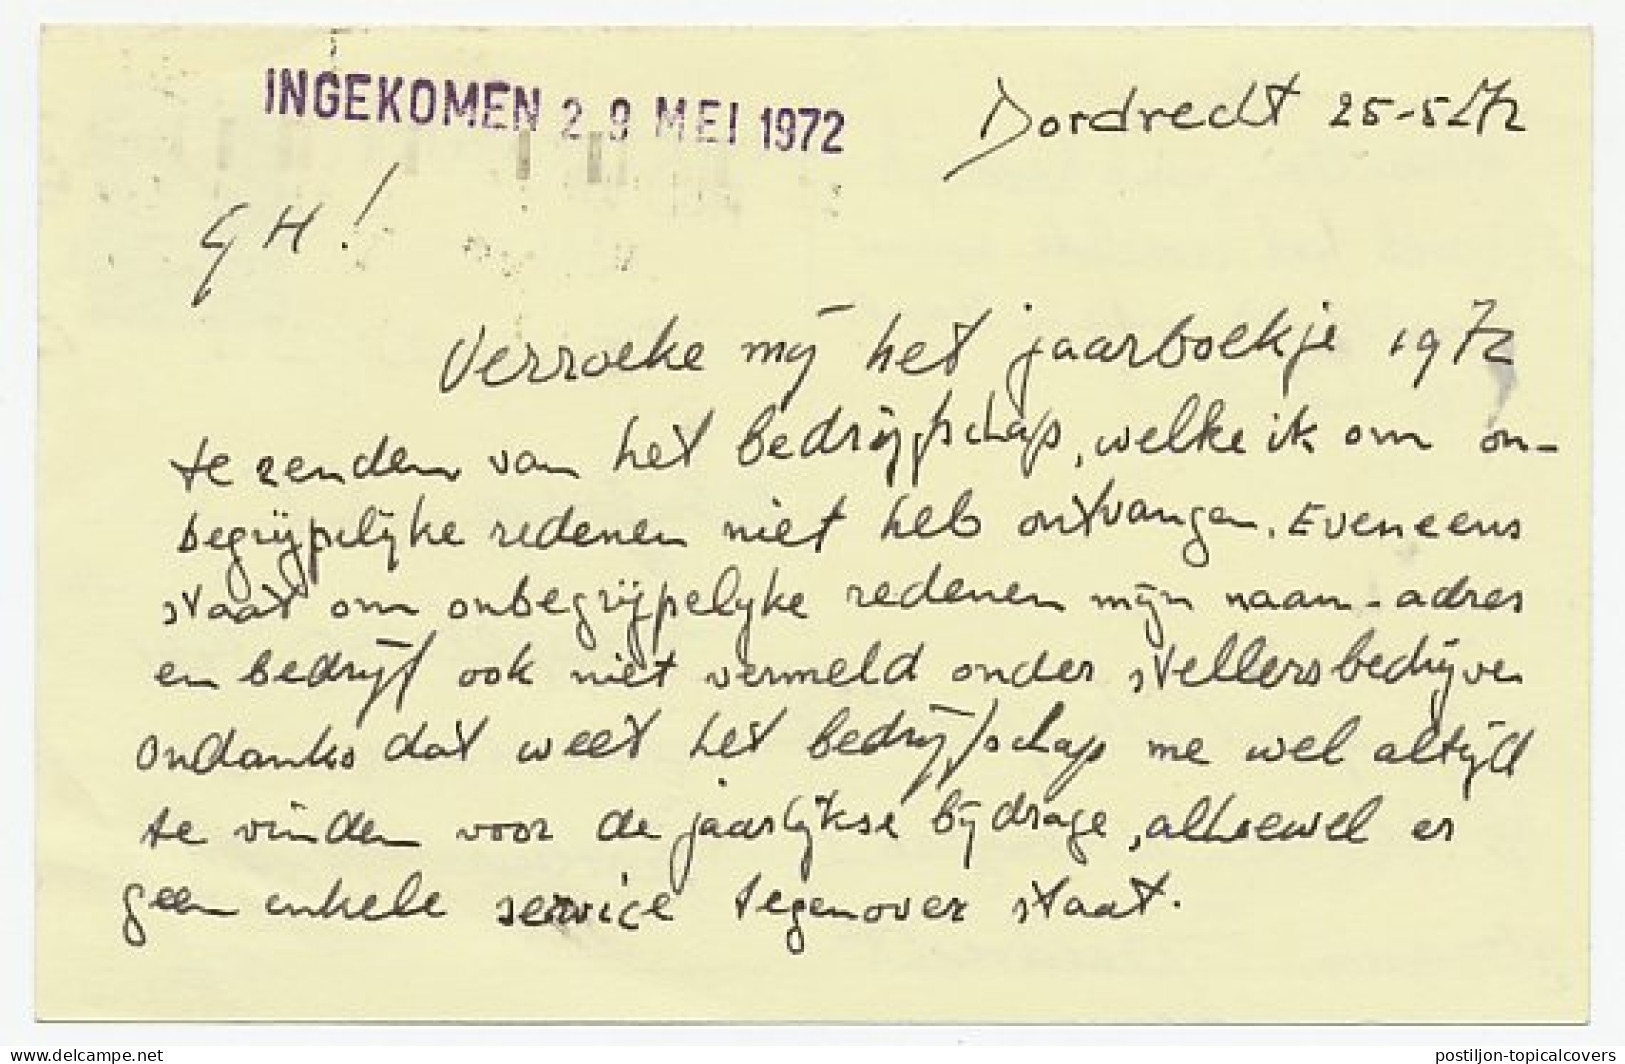 INGEKOMEN 29 MEI 1972
Dordrecht 25-5-72
GH!
Verzoeke mij het jaarboekje 1972
te zenden van het bedrijfschap, welke ik om on-
begrijpelijke redenen niet heb ontvangen. Eveneens
staat om onbegrijpelijke redenen mijn naam-adres
en bedrijf ook niet vermeld onder stellersbedrijven
ondanks dat weet het bedrijfschap me wel altijd
te vinden voor de jaarlijkse bijdrage, alhoewel er
geen enkele service tegenover staat.
www.delcampe.net
postiljon-topicalcovers